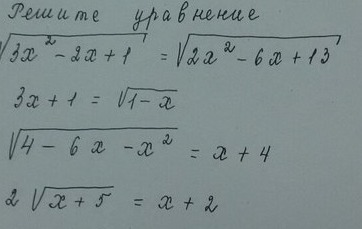 Решите уравнение
√(3x² - 2x + 1) = √(2x² - 6x + 13)
3x + 1 = √(1 - x)
√(4 - 6x - x²) = x + 4
2√(x + 5) = x + 2